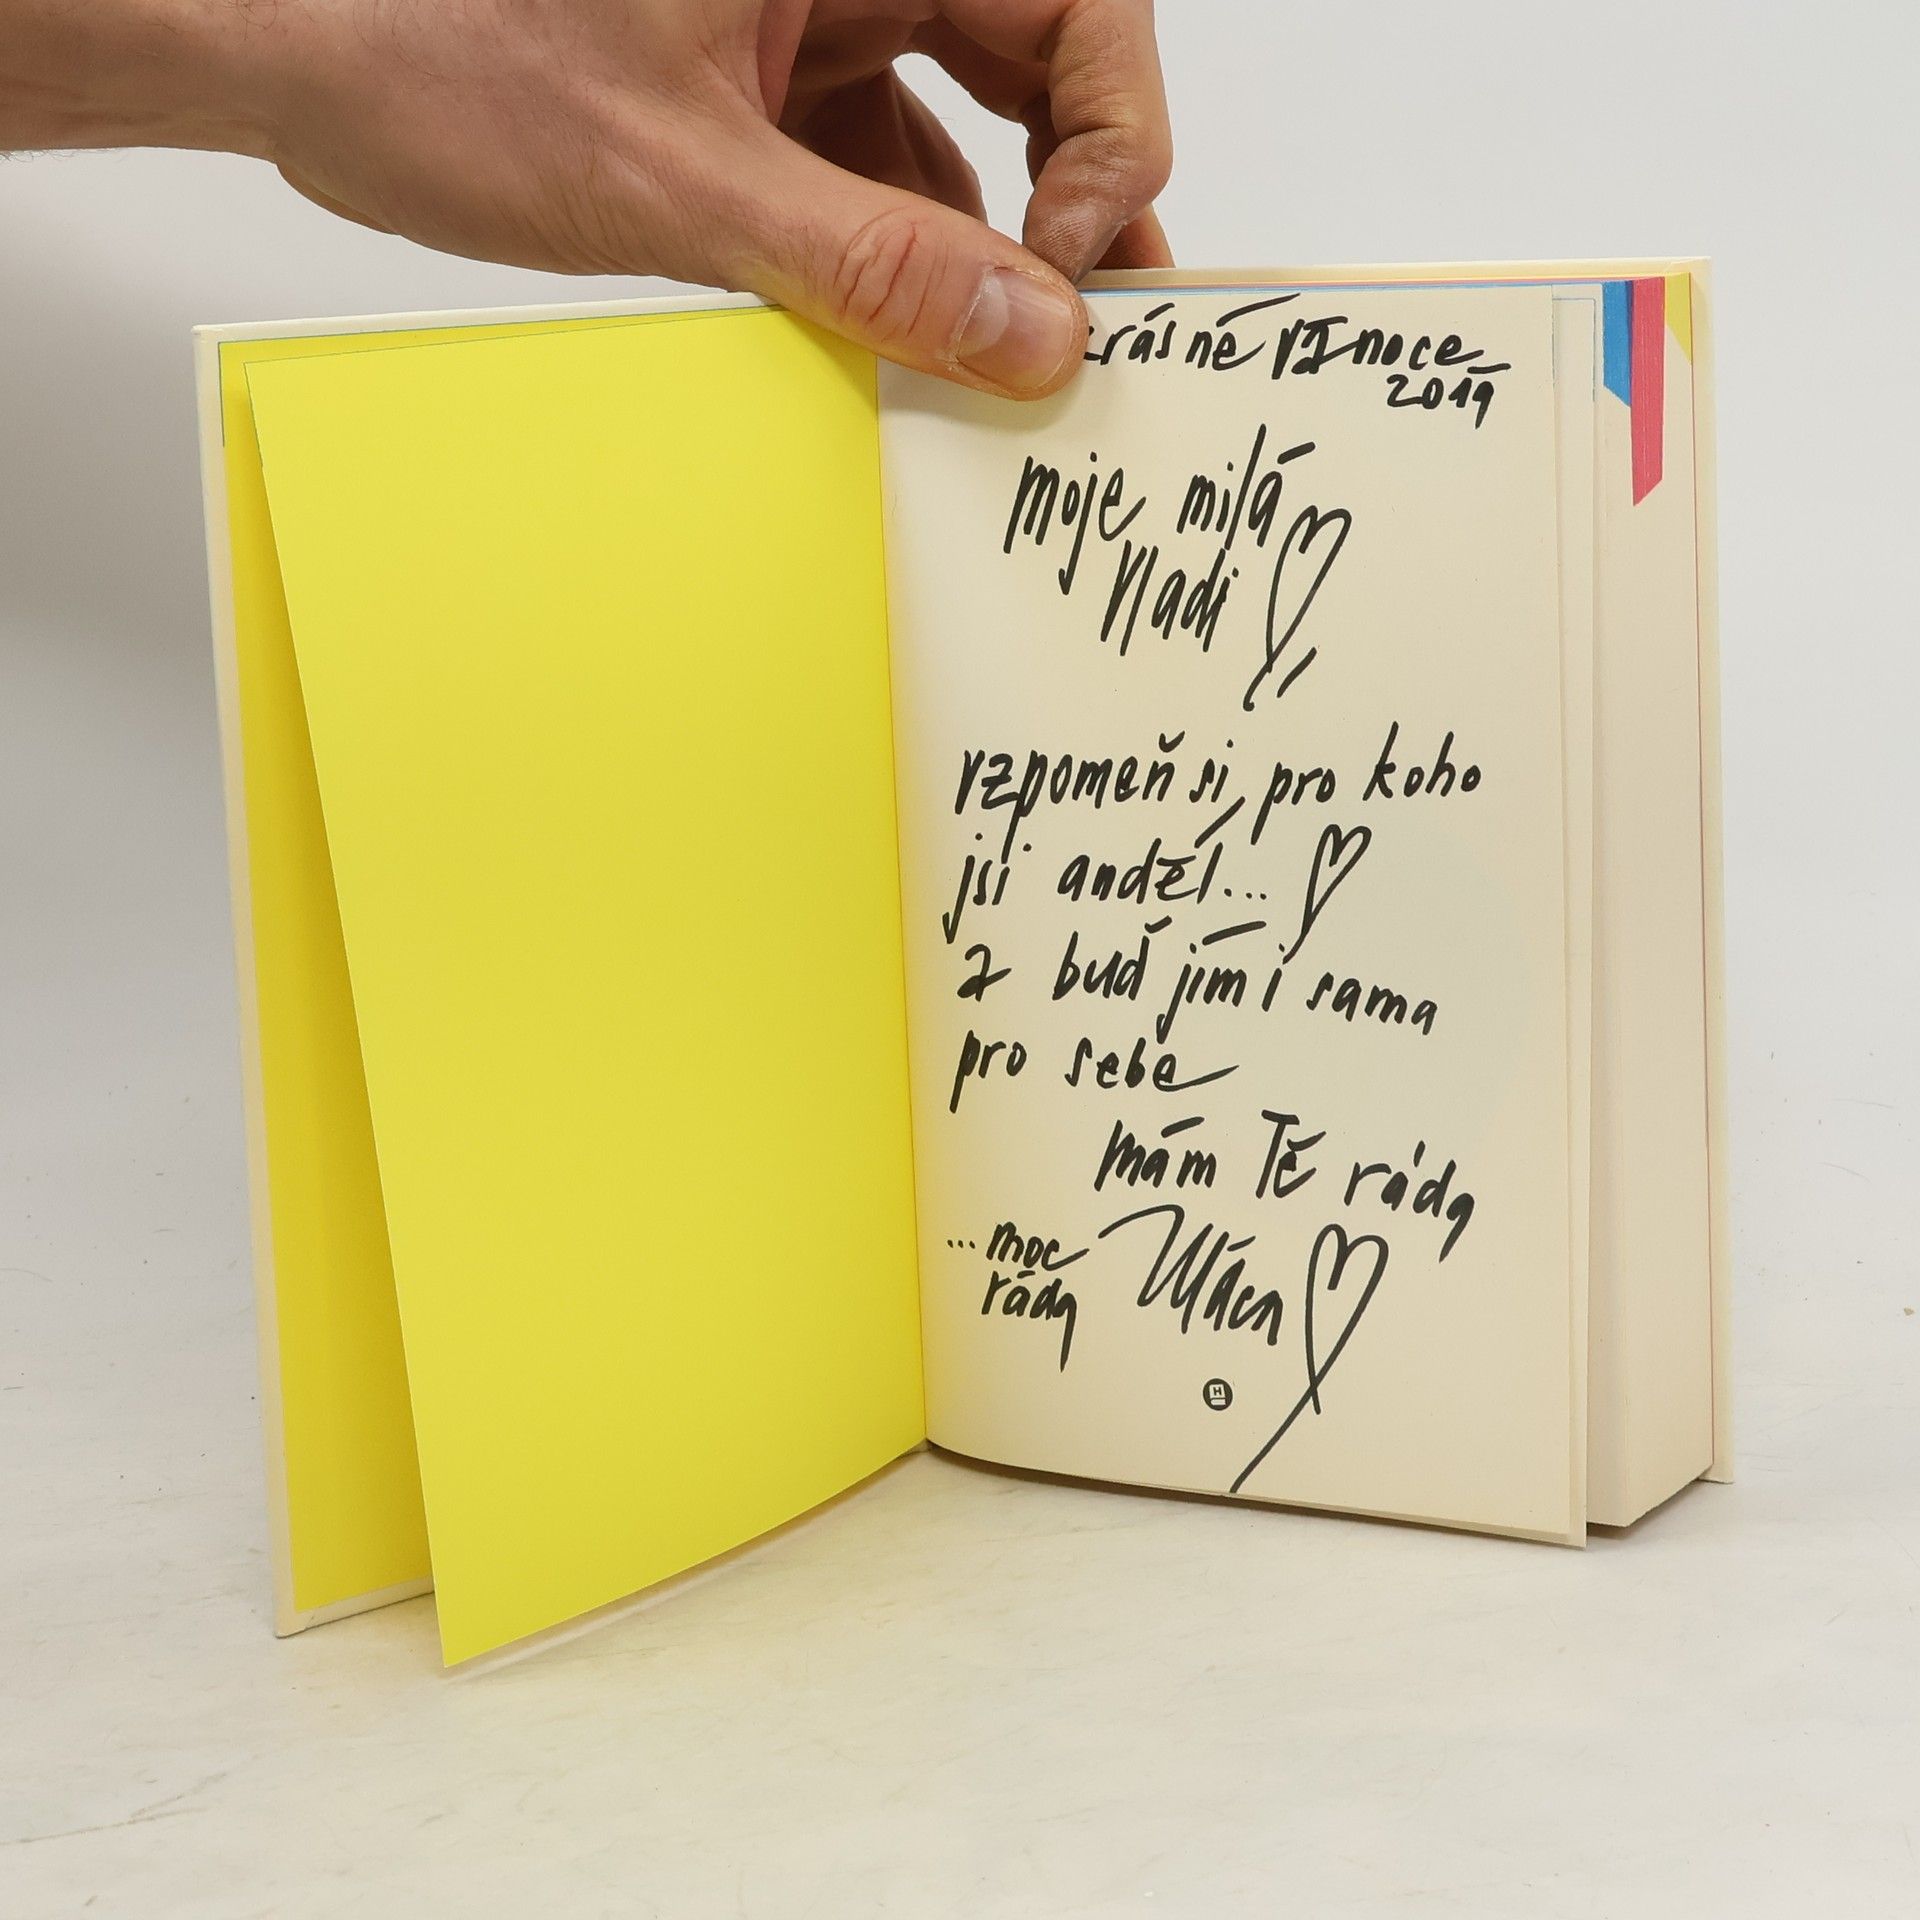 krásné vánoce
2019
moje milá
Vladi
vzpomeň si, pro koho
jsi anděl...
a buď jím i sama
pro sebe
mám Tě ráda
... moc
ráda
H